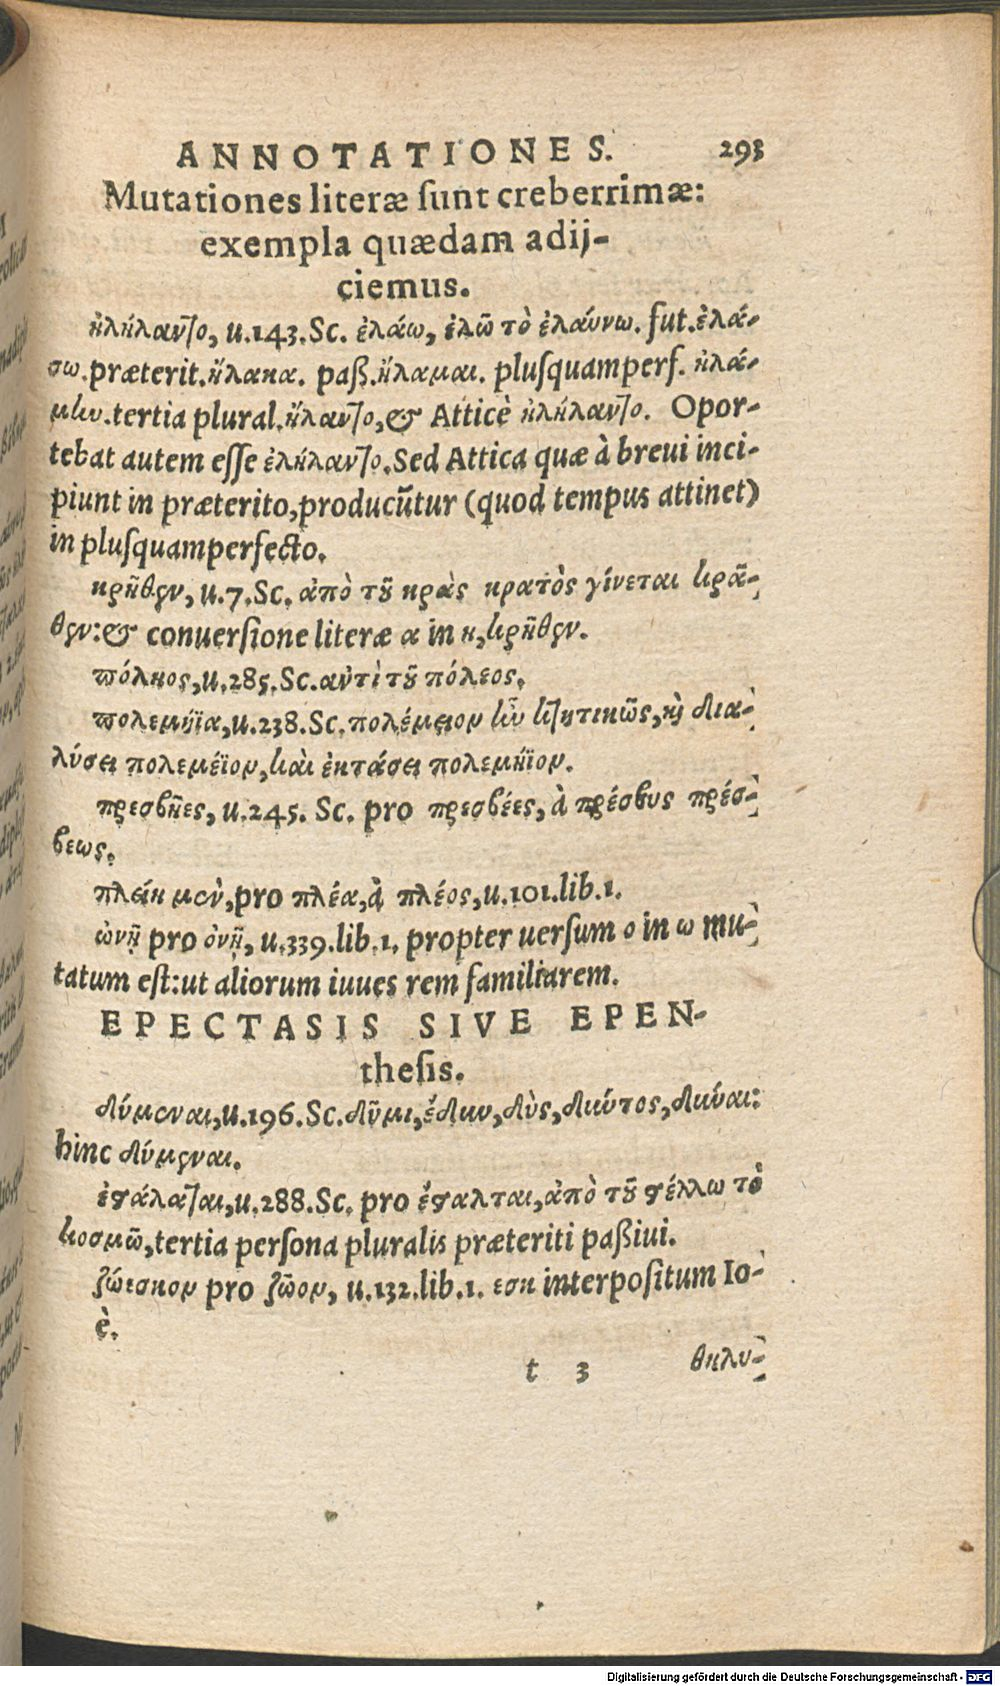 ANNOTATIONES. 293
Mutationes literæ ſunt creberrimæ:
exempla quædam adij-
ciemus.
ἠλήλαντο, u.143. Sc. ἐλάω, ἐλῶ τὸ ἐλαύνω. fut. ἐλά-
σω. præterit. ἤλακα. paß. ἤλαμαι. pluſquamperf. ἠλά-
μην. tertia plural. ἤλαντο, & Atticè ἠλήλαντο. Opor-
tebat autem eſſe ἐλήλαντο. Sed Attica quæ à breui inci-
piunt in præterito, producūtur (quod tempus attinet)
in pluſquamperfecto.
κρῆθεν, u.7. Sc. ἀπὸ τοῦ κρὰς κρατὸς γίνεται κρᾶ-
θεν: & conuerſione literæ α in η, κρῆθεν.
πόληος, u.285. Sc. αντὶ τοῦ πόλεος.
πολεμήϊα, u.238. Sc. πολέμειον ἦν κτητικῶς, καὶ δια-
λύσει πολεμέϊον, καὶ ἐκτάσει πολεμήϊον.
πρεσβῆες, u.245. Sc. pro πρεσβέες, à πρέσβυς πρέσ-
βεως.
πλείη μὲν, pro πλέα, à πλέος, u.101. lib.1.
ὠνῇ pro ὀνῇ, u.339. lib.1. propter uerſum ο in ω mu-
tatum eſt: ut aliorum iuues rem familiarem.
EPECTASIS SIVE EPEN-
theſis.
δύμεναι, u.196. Sc. δῦμι, ἔδυν, δὺς, δύντος, δύναι:
hinc δύμεναι.
ἐψάλαται, u.288. Sc. pro ἔψαλται, ἀπὸ τοῦ ψέλλω τὸ
κοσμῶ, tertia perſona pluralis præteriti paßiui.
ζώεσκον pro ζῶον, u.132. lib.1. εσκ interpoſitum Io-
è.
t 3 θηλυ-
Digitalisierung gefördert durch die Deutsche Forschungsgemeinschaft - DFG